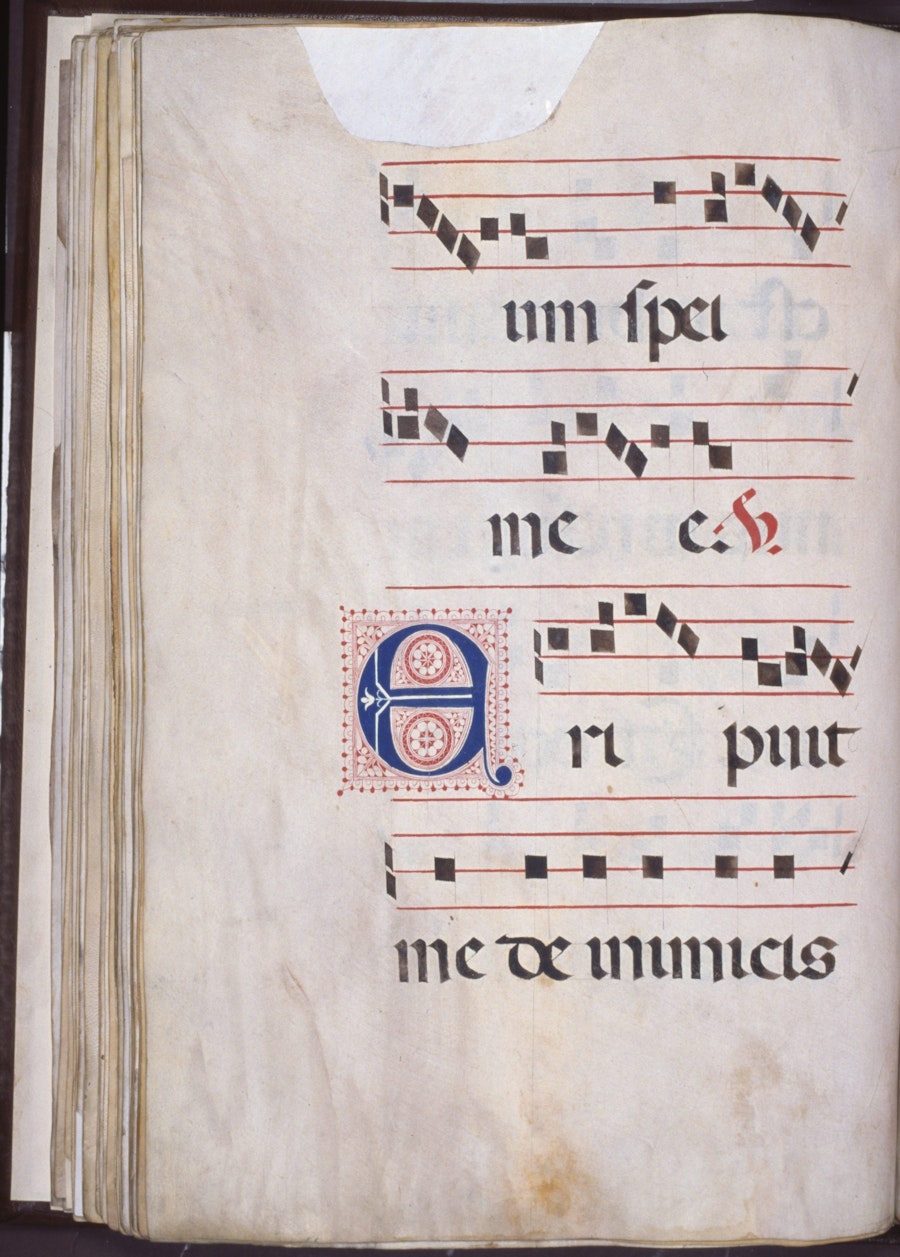 um spei
me e. ℣.
E ri puit
me de inimicis